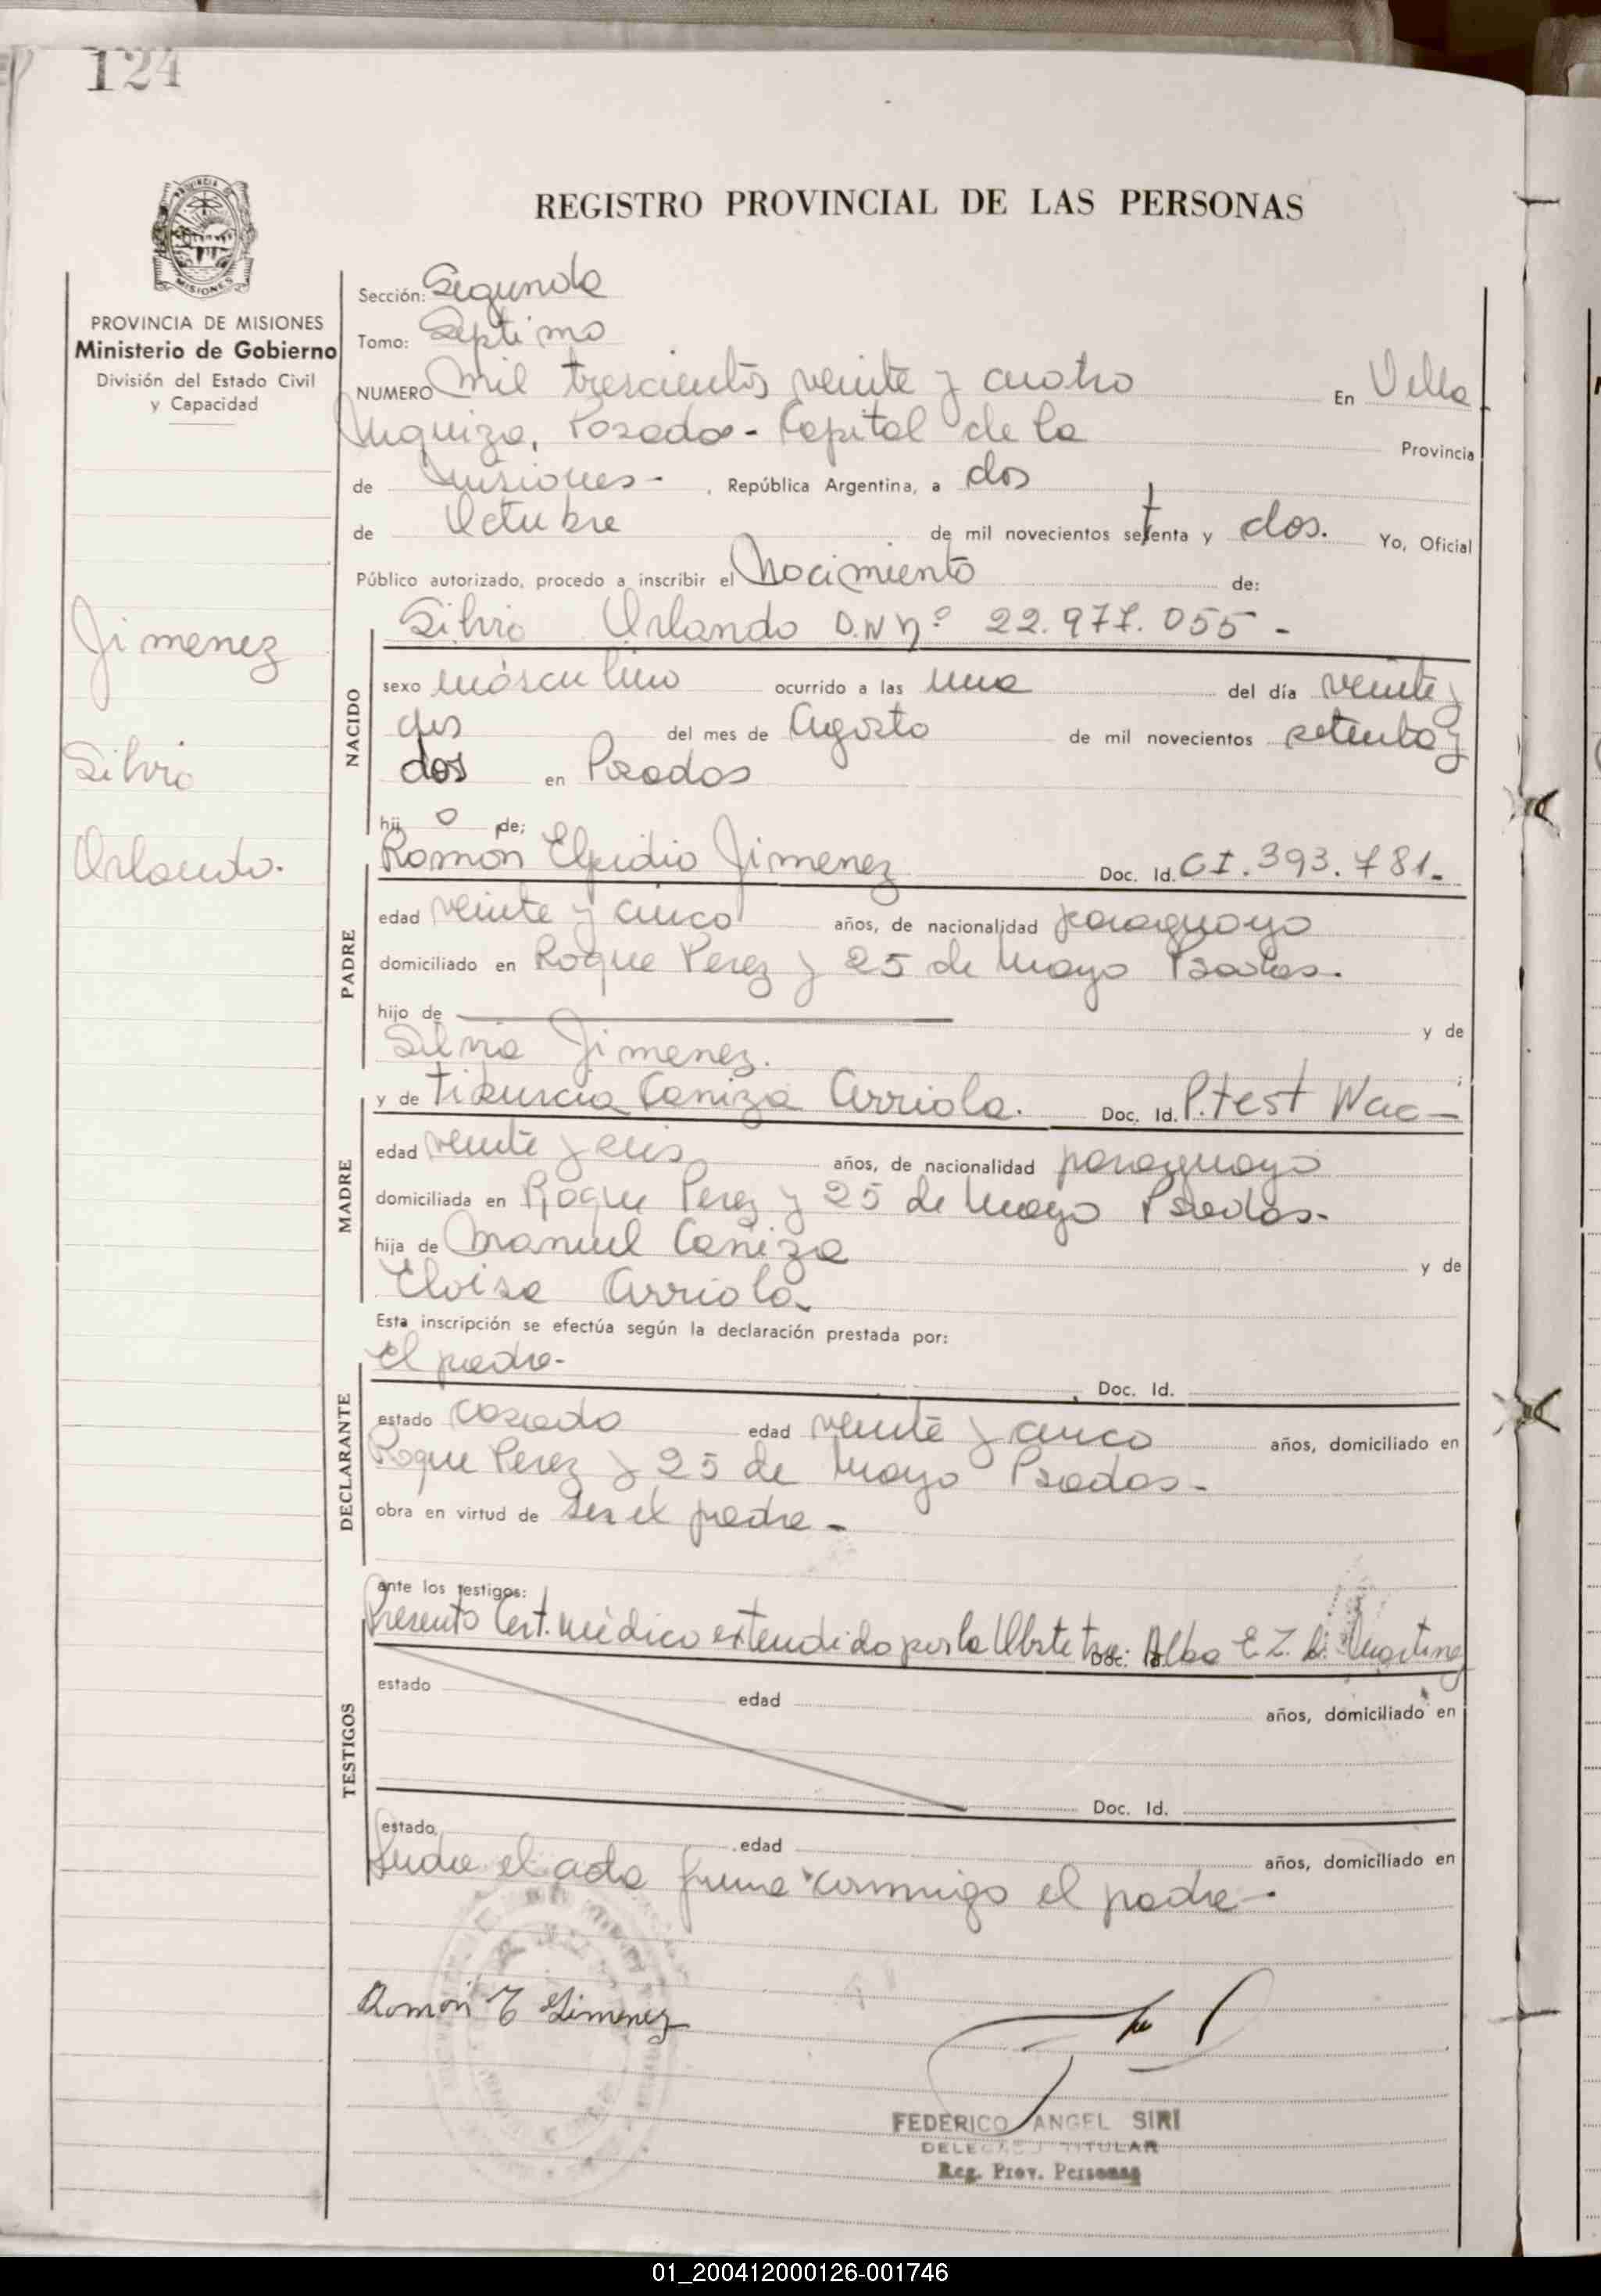 124
REGISTRO PROVINCIAL DE LAS PERSONAS
MISIONES
PROVINCIA DE MISIONES
Ministerio de Gobierno
División del Estado Civil
y Capacidad
Jimenez
Silvio
Orlando.
Sección: Segunda
Tomo: Septimo
NUMERO Mil trescientos veinte y cuatro En Villa
Urquiza, Posadas - Capital de la Provincia
de Misiones - , República Argentina, a dos
de Octubre de mil novecientos setenta y dos. Yo, Oficial
Público autorizado, procedo a inscribir el Nacimiento de:
Silvio Orlando D.N nº 22.977.055 -
NACIDO
sexo másculino ocurrido a las una del día veinte y
del mes de Agosto de mil novecientos setenta y
dos en Posadas
hij o de:
Ramón Elpidio Jimenez Doc. Id. CI. 393.781.-
PADRE
edad veinte y cinco años, de nacionalidad paraguayo
domiciliado en Roque Perez y 25 de Mayo Posadas.
hijo de y de
Silvia Jimenez.
MADRE
y de Tiburcia Caniza Arriola. Doc. Id. P.test Nac -
edad veinte y seis años, de nacionalidad paraguaya
domiciliada en Roque Perez y 25 de Mayo Posadas-
hija de Manuel Caniza y de
Eloisa Arriola.
Esta inscripción se efectúa según la declaración prestada por:
El padre- Doc. Id.
DECLARANTE
estado casado edad veinte y cinco años, domiciliado en
Roque Perez y 25 de Mayo Posadas-
obra en virtud de ser el padre -
ante los testigos:
Presento Cert. médico extendido por la Obstetra: Alba E. Z. de Martinez
TESTIGOS
estado edad años, domiciliado en
Doc. Id.
estado edad años, domiciliado en
el acta firma conmigo el padre -
Ramón E Jimenez
FEDERICO ANGEL SIRI
DELEGADO TITULAR
Reg. Prov. Personas
01_200412000126-001746